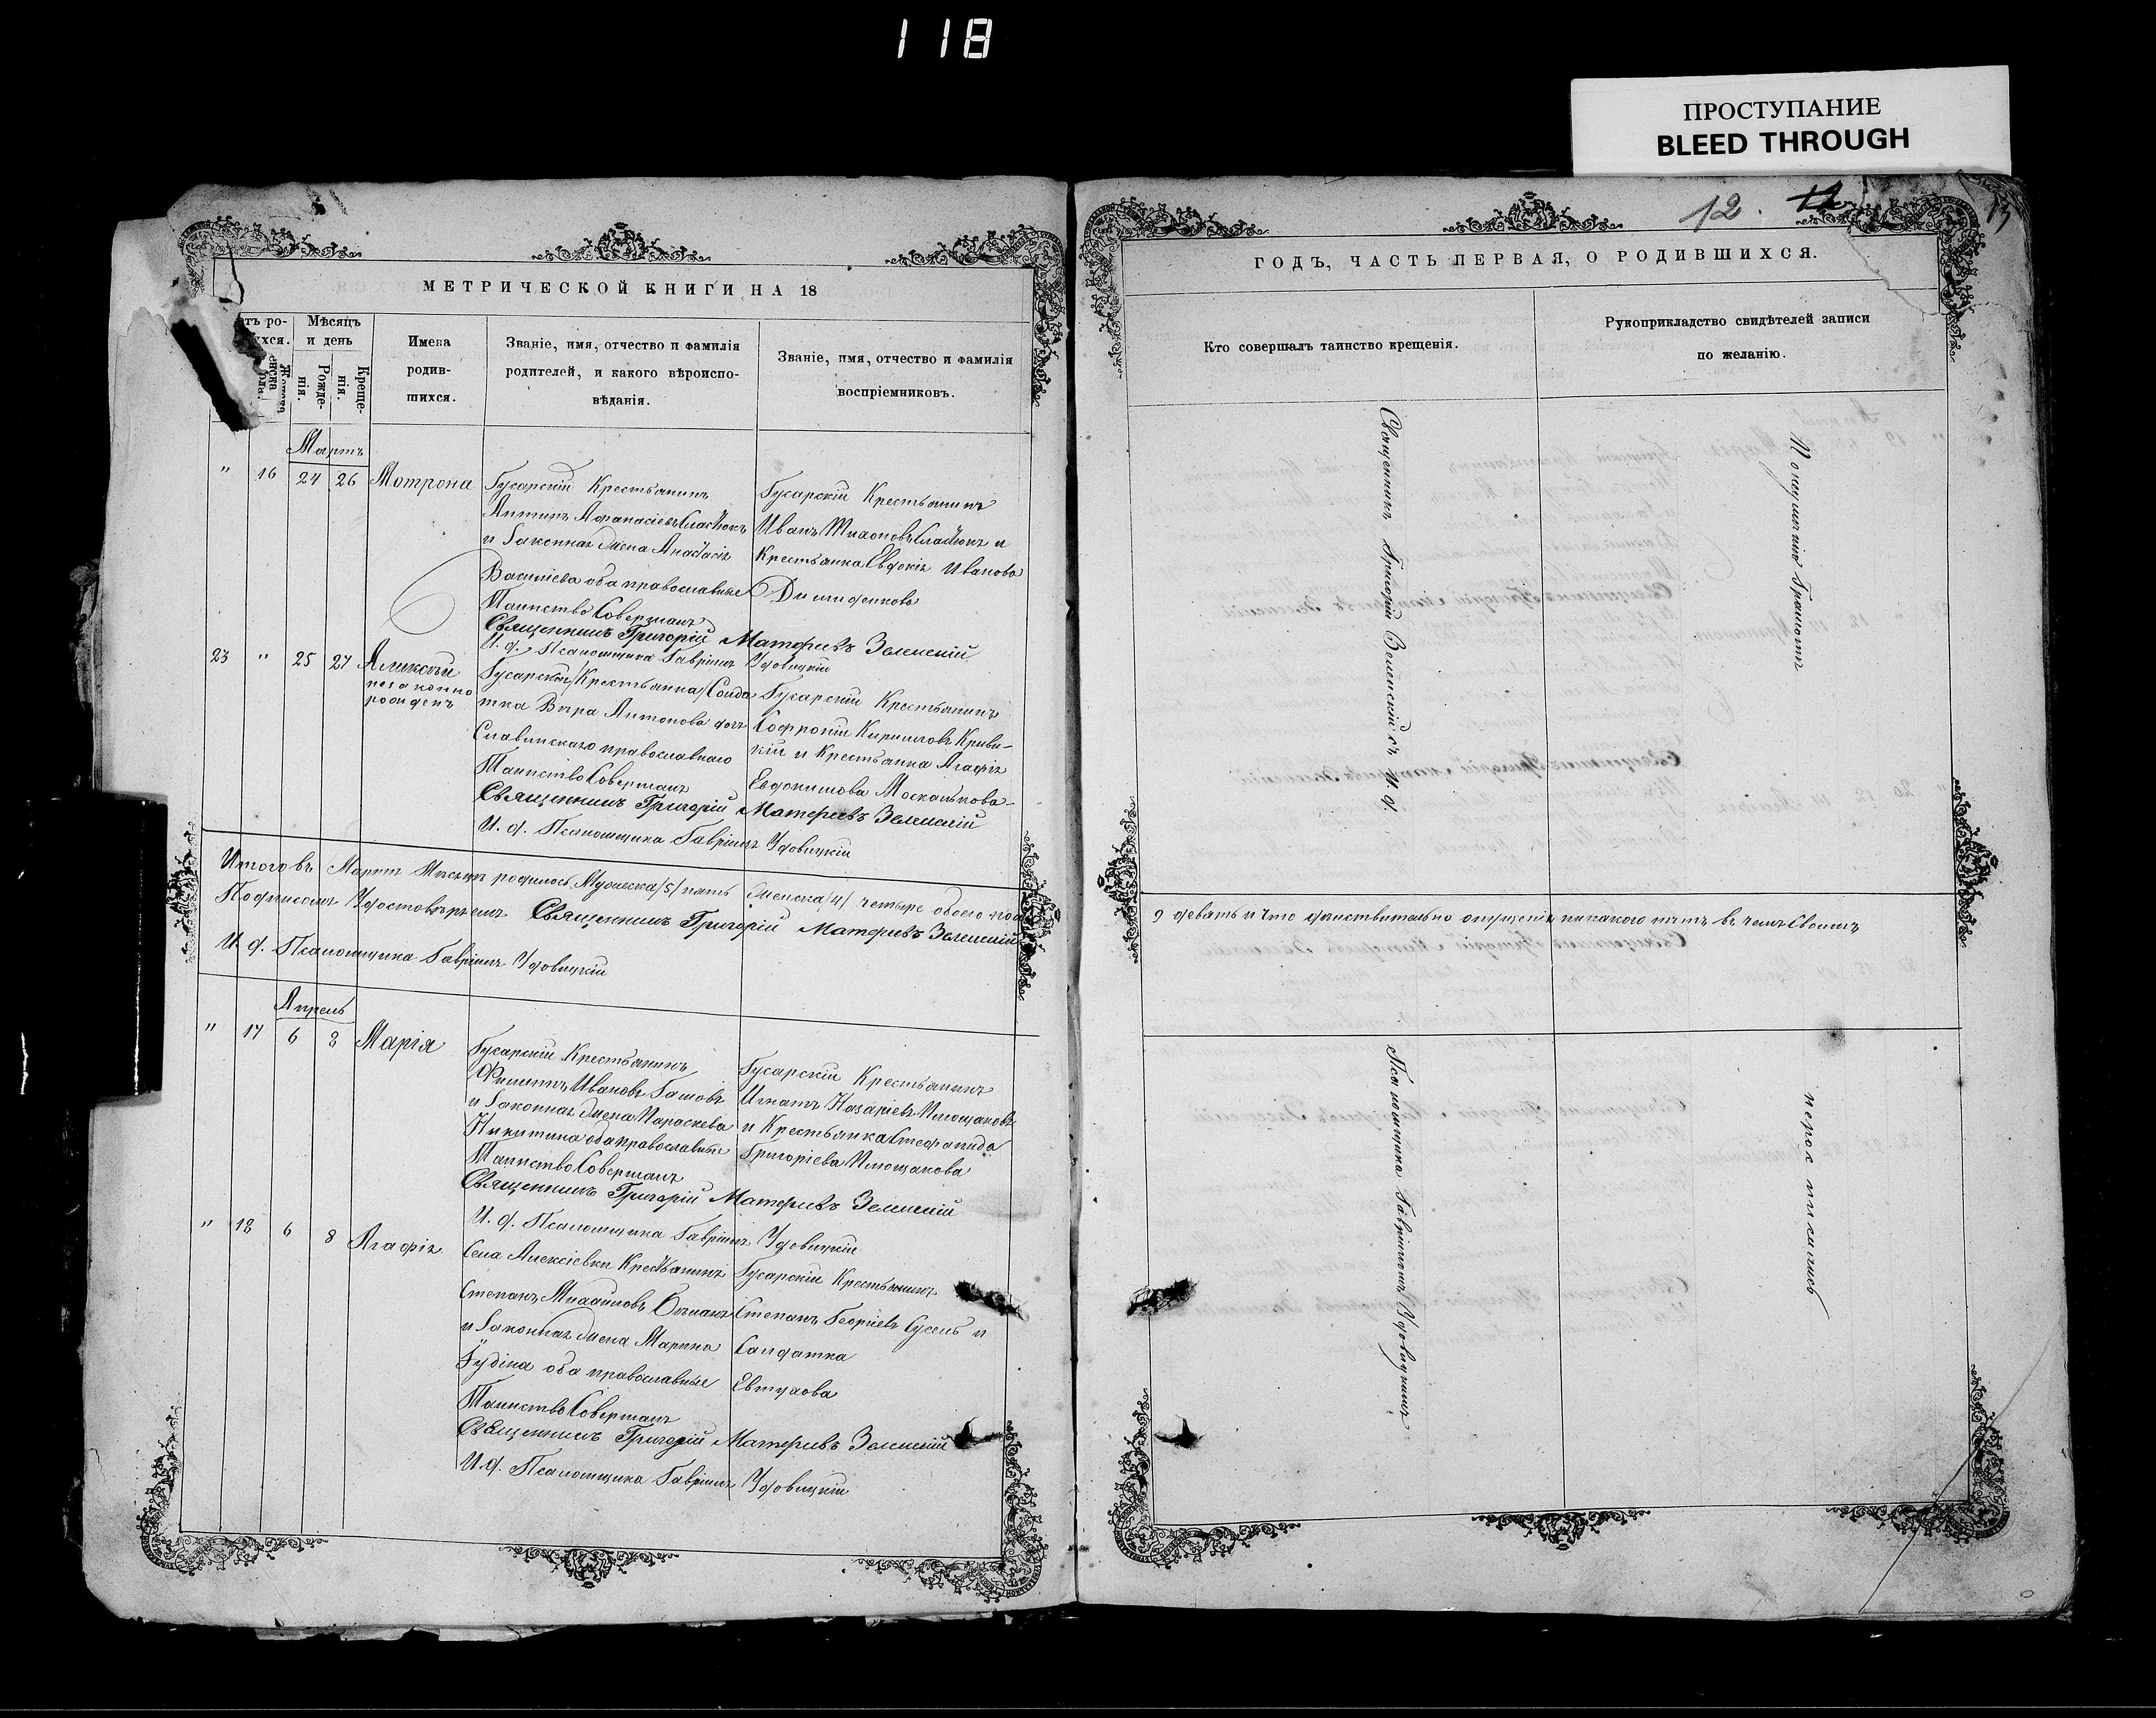 118
ПРОСТУПАНИЕ
BLEED THROUGH
МЕТРИЧЕСКОЙ КНИГИ НА 18
Мѣсяцъ и день
Рожде-нія.
Креще-нія.
Имена родив-шихся.
Званіе, имя, отчество и фамилія родителей, и какого вѣроиспо-вѣданія.
Званіе, имя, отчество и фамилія воспріемниковъ.
Мартъ
" 16 24 26 Мотрона
Гусарскій Крестьянинъ
Антипъ Афанасіевъ
и законная жена Анастасія
Василіева оба православные
Таинство Совершалъ
Священникъ Григорій Матфіевъ Зеленскій
И. д. Псаломщика Гавріилъ Удовицкій
Гусарскій Крестьянинъ
Иванъ Тихоновъ и
Крестьянка Евдокія Иванова
23 " 25 27 Алексѣй
незаконно
рожденъ
Гусарская Крестьянка Солда
тка Вѣра Антонова дочь
Славинскаго православнаго
Таинство Совершалъ
Священникъ Григорій Матфіевъ Зеленскій
И. д. Псаломщика Гавріилъ Удовицкій
Гусарскій Крестьянинъ
Софроній Кирилловъ Криви-
кій и Крестьянка Агафія
Евдокимова Москалькова
Итого въ Мартѣ Мѣсяцѣ родилось Мужеска /5/ пять Женска /4/ четыре обоего пола
Подписомъ Удостовѣряемъ Священникъ Григорій Матфіевъ Зеленскій
И. д. Псаломщика Гавріилъ Удовицкій
Апрель
" 17 6 8 Марія
Гусарскій Крестьянинъ
Филиппъ Ивановъ Гашовъ
и законная жена Параскева
Никитина оба православные
Таинство Совершалъ
Священникъ Григорій Матфіевъ Зеленскій
И. д. Псаломщика Гавріилъ Удовицкій
Гусарскій Крестьянинъ
Игнатъ Назаріевъ Площаковъ
и Крестьянка Стефанида
Григоріева Площакова
" 18 6 8 Агафія
Села Алексіевки Крестьянинъ
Степанъ Михайловъ
и законная жена Марина
оба православные
Таинство Совершалъ
Священникъ Григорій Матфіевъ Зеленскій
И. д. Псаломщика Гавріилъ Удовицкій
Гусарскій Крестьянинъ
Степанъ Георгіевъ Сусень и
Салдатка
Евтухова
12.
13
ГОДЪ, ЧАСТЬ ПЕРВАЯ, О РОДИВШИХСЯ.
Кто совершалъ таинство крещенія.
Рукоприкладство свидѣтелей записи
по желанію.
Священникъ Григорій Зеленскій съ И. д.
Псаломщика Гавріиломъ Удовицкимъ
По неумѣнію Грамотѣ
9 девять и что дѣйствительно опущенія никакого нѣтъ въ чемъ Своимъ